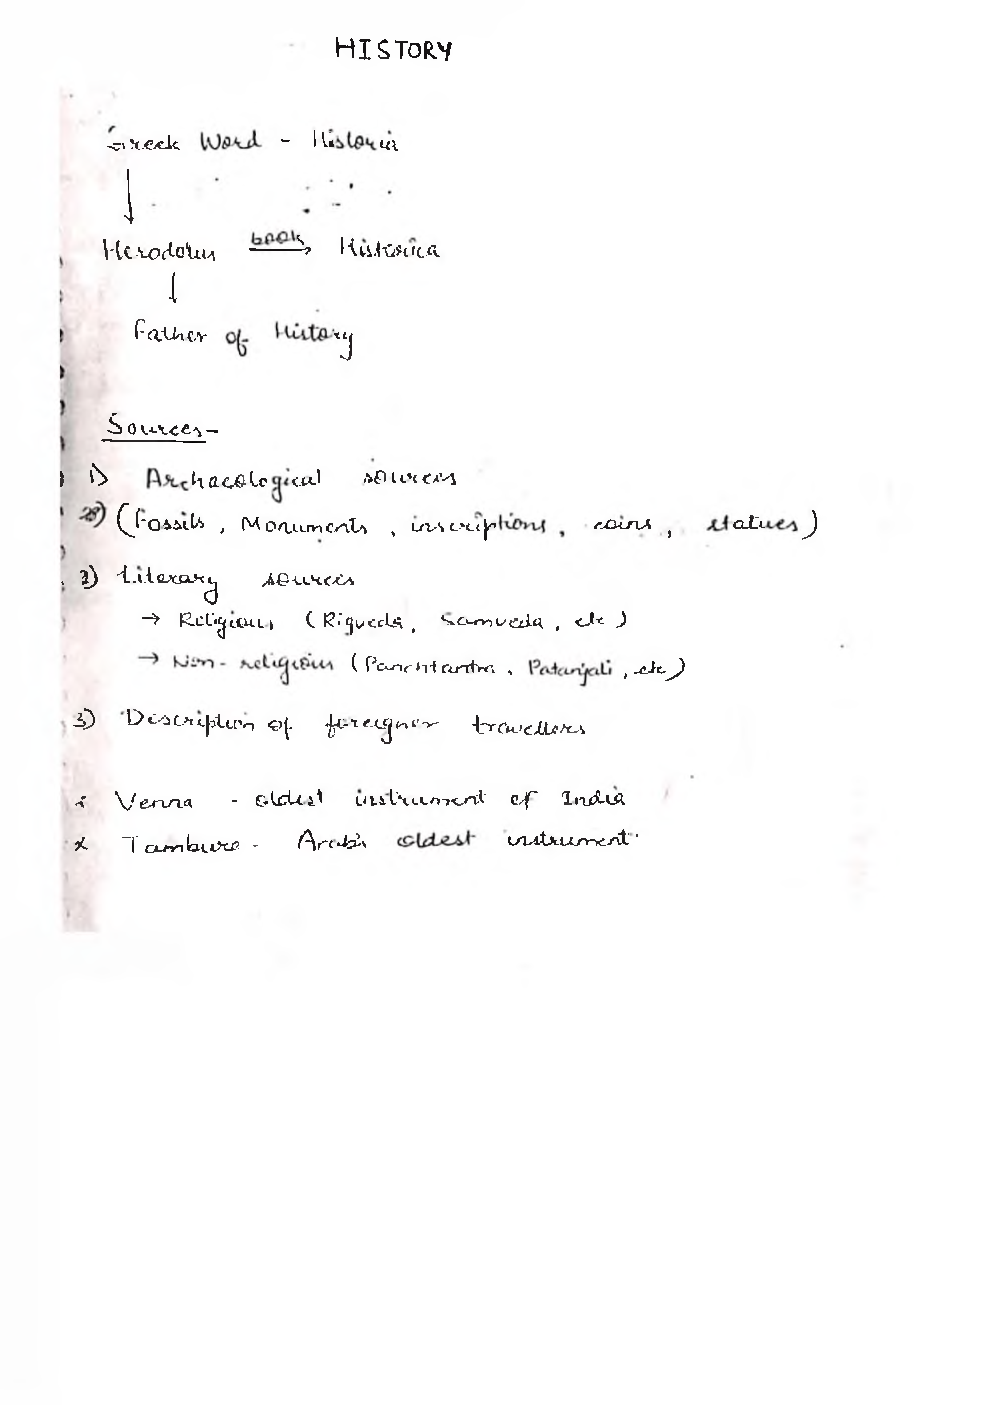 HISTORY
Greek Word - Historia
Herodotus book Historica
Father of History
Sources-
1) Archaeological sources
(Fossils, Monuments, inscriptions, coins, statues)
2) Literary sources
→ Religious (Rigveda, Samveda, etc)
→ Non-religious (Panchtantra, Patanjali, etc)
3) Description of foreigner travellers
* Venna - oldest instrument of India
* Tamburo - Arab's oldest instrument